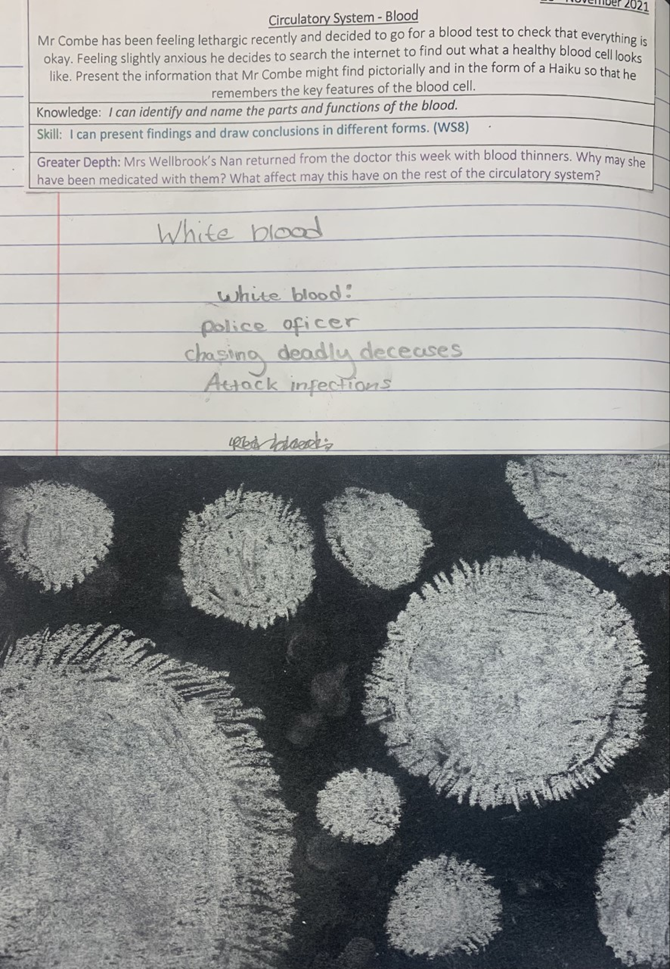 November 2021
Circulatory System - Blood
Mr Combe has been feeling lethargic recently and decided to go for a blood test to check that everything is
okay. Feeling slightly anxious he decides to search the internet to find out what a healthy blood cell looks
like. Present the information that Mr Combe might find pictorially and in the form of a Haiku so that he
remembers the key features of the blood cell.
Knowledge: I can identify and name the parts and functions of the blood.
Skill: I can present findings and draw conclusions in different forms. (WS8)
Greater Depth: Mrs Wellbrook's Nan returned from the doctor this week with blood thinners. Why may she
have been medicated with them? What affect may this have on the rest of the circulatory system?
White blood
white blood:
police oficer
chasing deadly deceases
Attack infections